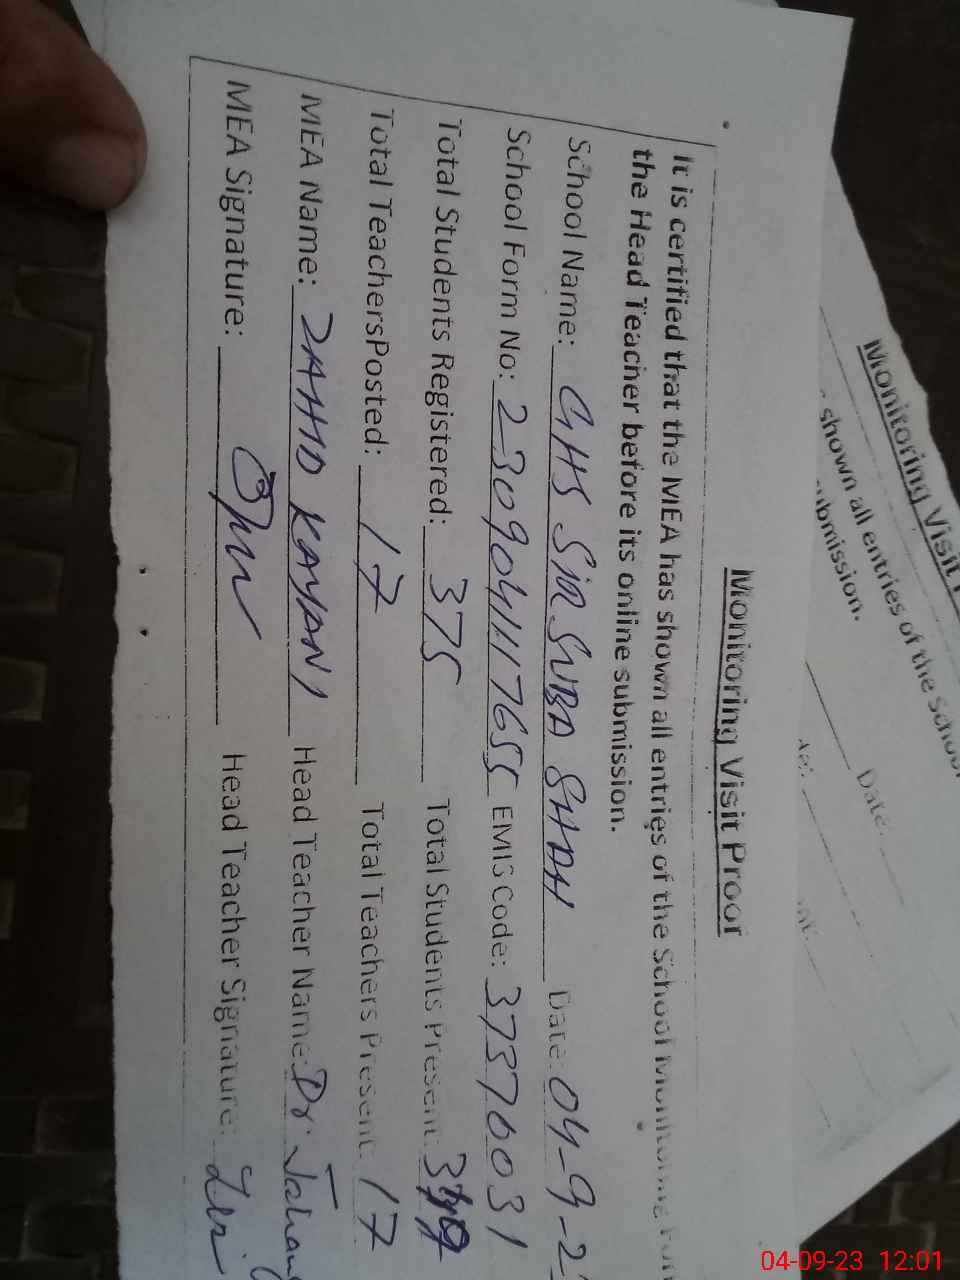 Monitoring Visit Proof
It is certified that the MEA has shown all entries of the School Monitoring
the Head Teacher before its online submission.
School Name: GHS SIR SUBA SHAH Date: 04-9-2
School Form No: 2309041117655 EMIS Code: 37370031
Total Students Registered: 375 Total Students Present:
Total TeachersPosted: 17 Total Teachers Present: 17
MEA Name: ZAHID KAYANI Head Teacher Name: Dr.
MEA Signature: Head Teacher Signature:
Monitoring Visit
shown all entries of the School
submission.
Date:
04-09-23 12:01